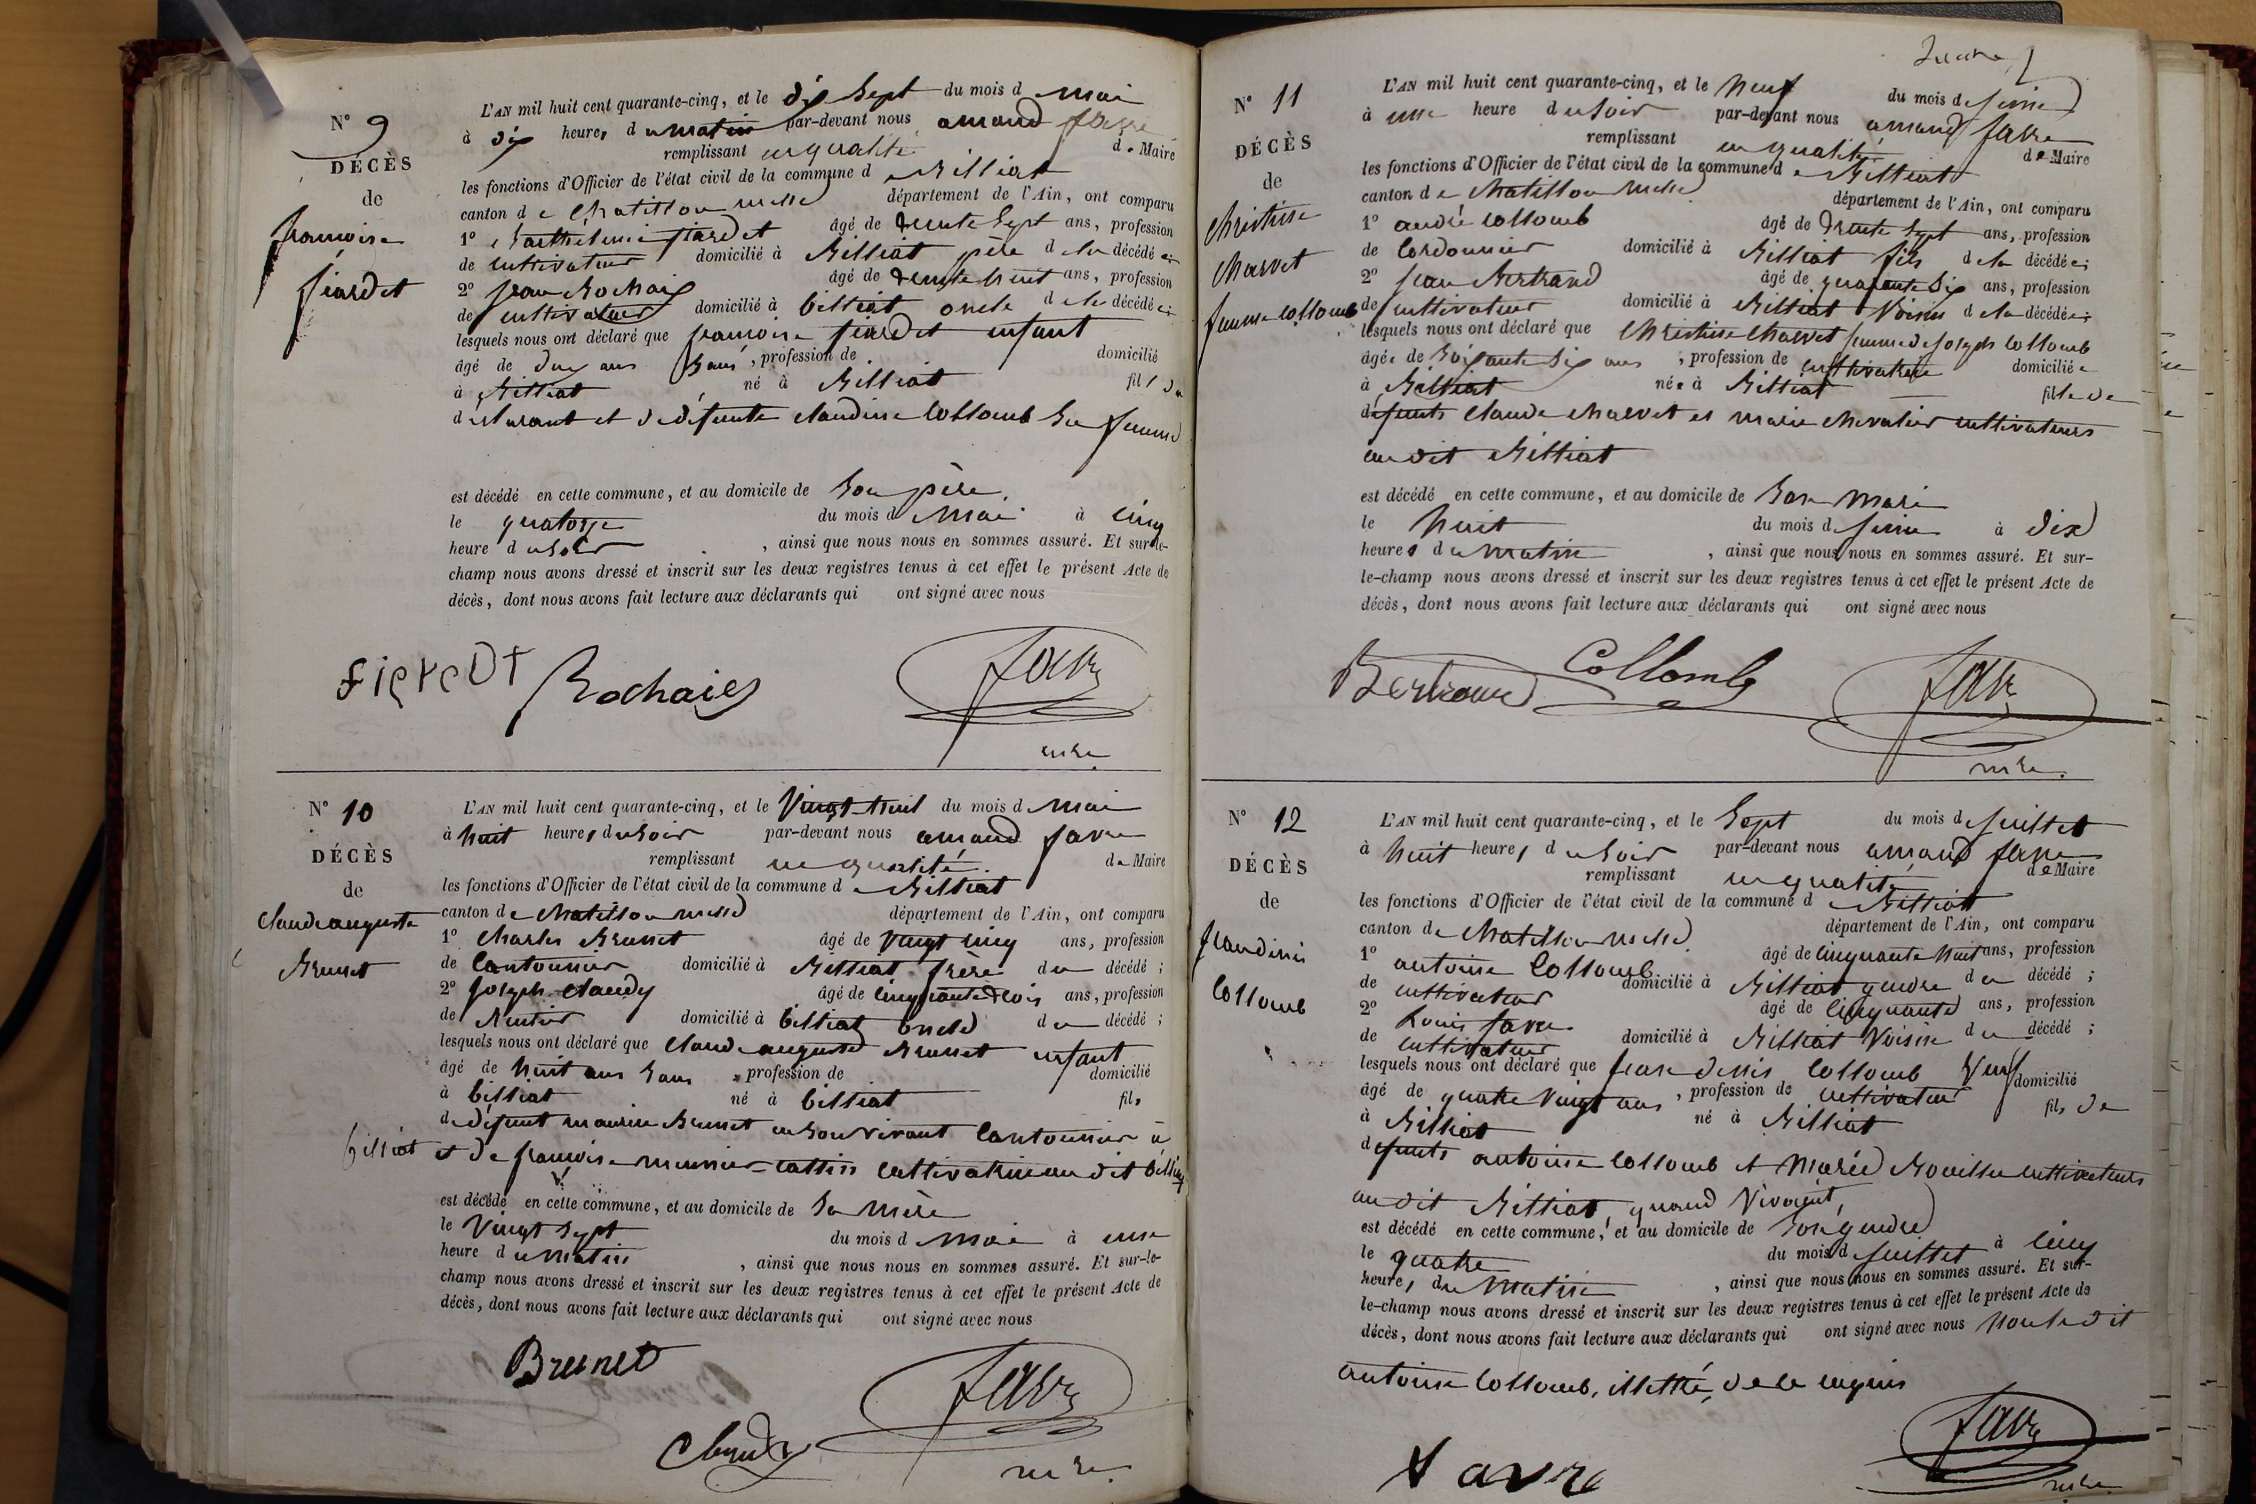 N° 9
DÉCÈS
de
françoise
fiardet
L'AN mil huit cent quarante-cinq, et le dix Sept du mois de mai
à dix heures du matin par-devant nous amand favre
remplissant en qualité de Maire
les fonctions d'Officier de l'état civil de la commune de Billiat
canton de Chatillon michd département de l'Ain, ont comparu
1° Barthélemi fiardet âgé de trente Sept ans, profession
de cultivateur domicilié à Billiat père de la décédée;
2° jean Rochaix âgé de trente huit ans, profession
de cultivateur domicilié à billiat oncle de la décédée;
lesquels nous ont déclaré que françoise fiardet enfant
âgé de deux ans Sans, profession de domicilié
à Billiat né à Billiat fille du
déclarant et de défunte claudine Collomb Sa femme
est décédé en cette commune, et au domicile de Son père
le quatorze du mois de Mai à cinq
heure du Soir, ainsi que nous nous en sommes assuré. Et sur-le-
champ nous avons dressé et inscrit sur les deux registres tenus à cet effet le présent Acte de
décès, dont nous avons fait lecture aux déclarants qui ont signé avec nous
Rochaix favre
mre.
N° 10
DÉCÈS
de
Claude auguste
Brunet
L'AN mil huit cent quarante-cinq, et le Vingt-huit du mois de mai
à huit heures du Soir par-devant nous amand favre
remplissant en qualité de Maire
les fonctions d'Officier de l'état civil de la commune de Billiat
canton de Chatillon michd département de l'Ain, ont comparu
1° Charles Brunet âgé de Vingt cinq ans, profession
de Cantonnier domicilié à Billiat frère du décédé;
2° Joseph Claudy âgé de cinquante trois ans, profession
de Rentier domicilié à billiat oncle du décédé;
lesquels nous ont déclaré que Claude auguste Brunet enfant
âgé de huit ans Sans, profession de domicilié
à billiat né à billiat fils
de défunt maurice Brunet en Son vivant Cantonnier à
billiat et de françoise meunier-cattin cultivatrice au dit billiat
est décédé en cette commune, et au domicile de Sa Mère
le Vingt Sept du mois de mai à une
heure du Matin, ainsi que nous nous en sommes assuré. Et sur-le-
champ nous avons dressé et inscrit sur les deux registres tenus à cet effet le présent Acte de
décès, dont nous avons fait lecture aux déclarants qui ont signé avec nous
Brunet favre
Claudy mre.
N° 11
DÉCÈS
de
Christine
Charvet
femme Collomb
L'AN mil huit cent quarante-cinq, et le Neuf du mois de juin
à une heure du Soir par-devant nous amand favre
remplissant en qualité de Maire
les fonctions d'Officier de l'état civil de la commune de Billiat
canton de Chatillon michd département de l'Ain, ont comparu
1° andré Collomb âgé de trente Sept ans, profession
de Cordonnier domicilié à Billiat fils de la décédée;
2° jean Bertrand âgé de quarante Six ans, profession
de cultivateur domicilié à Billiat Voisin de la décédée;
lesquels nous ont déclaré que Christine Charvet femme de Joseph Collomb
âgée de Soixante Six ans, profession de cultivatrice domiciliée
à Billiat née à Billiat fille de
défunts Claude Charvet et marie Chevalier cultivateurs
au dit Billiat
est décédé en cette commune, et au domicile de Son Mari
le huit du mois de juin à dix
heures du matin, ainsi que nous nous en sommes assuré. Et sur-
le-champ nous avons dressé et inscrit sur les deux registres tenus à cet effet le présent Acte de
décès, dont nous avons fait lecture aux déclarants qui ont signé avec nous
Bertrand Collomb favre
mre.
N° 12
DÉCÈS
de
Collomb
L'AN mil huit cent quarante-cinq, et le Sept du mois de juillet
à huit heures du Soir par-devant nous amand favre
remplissant en qualité de Maire
les fonctions d'Officier de l'état civil de la commune de Billiat
canton de Chatillon michd département de l'Ain, ont comparu
1° antoine Collomb âgé de cinquante huit ans, profession
de cultivateur domicilié à Billiat gendre du décédé;
2° Louis favre âgé de cinquante ans, profession
de cultivateur domicilié à Billiat Voisin du décédé;
lesquels nous ont déclaré que jean denis Collomb Veuf domicilié
âgé de quatre Vingt ans, profession de cultivateur
à Billiat né à Billiat fils de
défunts antoine Collomb et Marie cultivateurs
au dit Billiat quand Vivaient,
est décédé en cette commune, et au domicile de Son gendre
le quatre du mois de juillet à cinq
heures du Matin, ainsi que nous nous en sommes assuré. Et sur-
le-champ nous avons dressé et inscrit sur les deux registres tenus à cet effet le présent Acte de
décès, dont nous avons fait lecture aux déclarants qui ont signé avec nous non le dit
antoine Collomb, illettré, de ce requis
favre
favre mre.